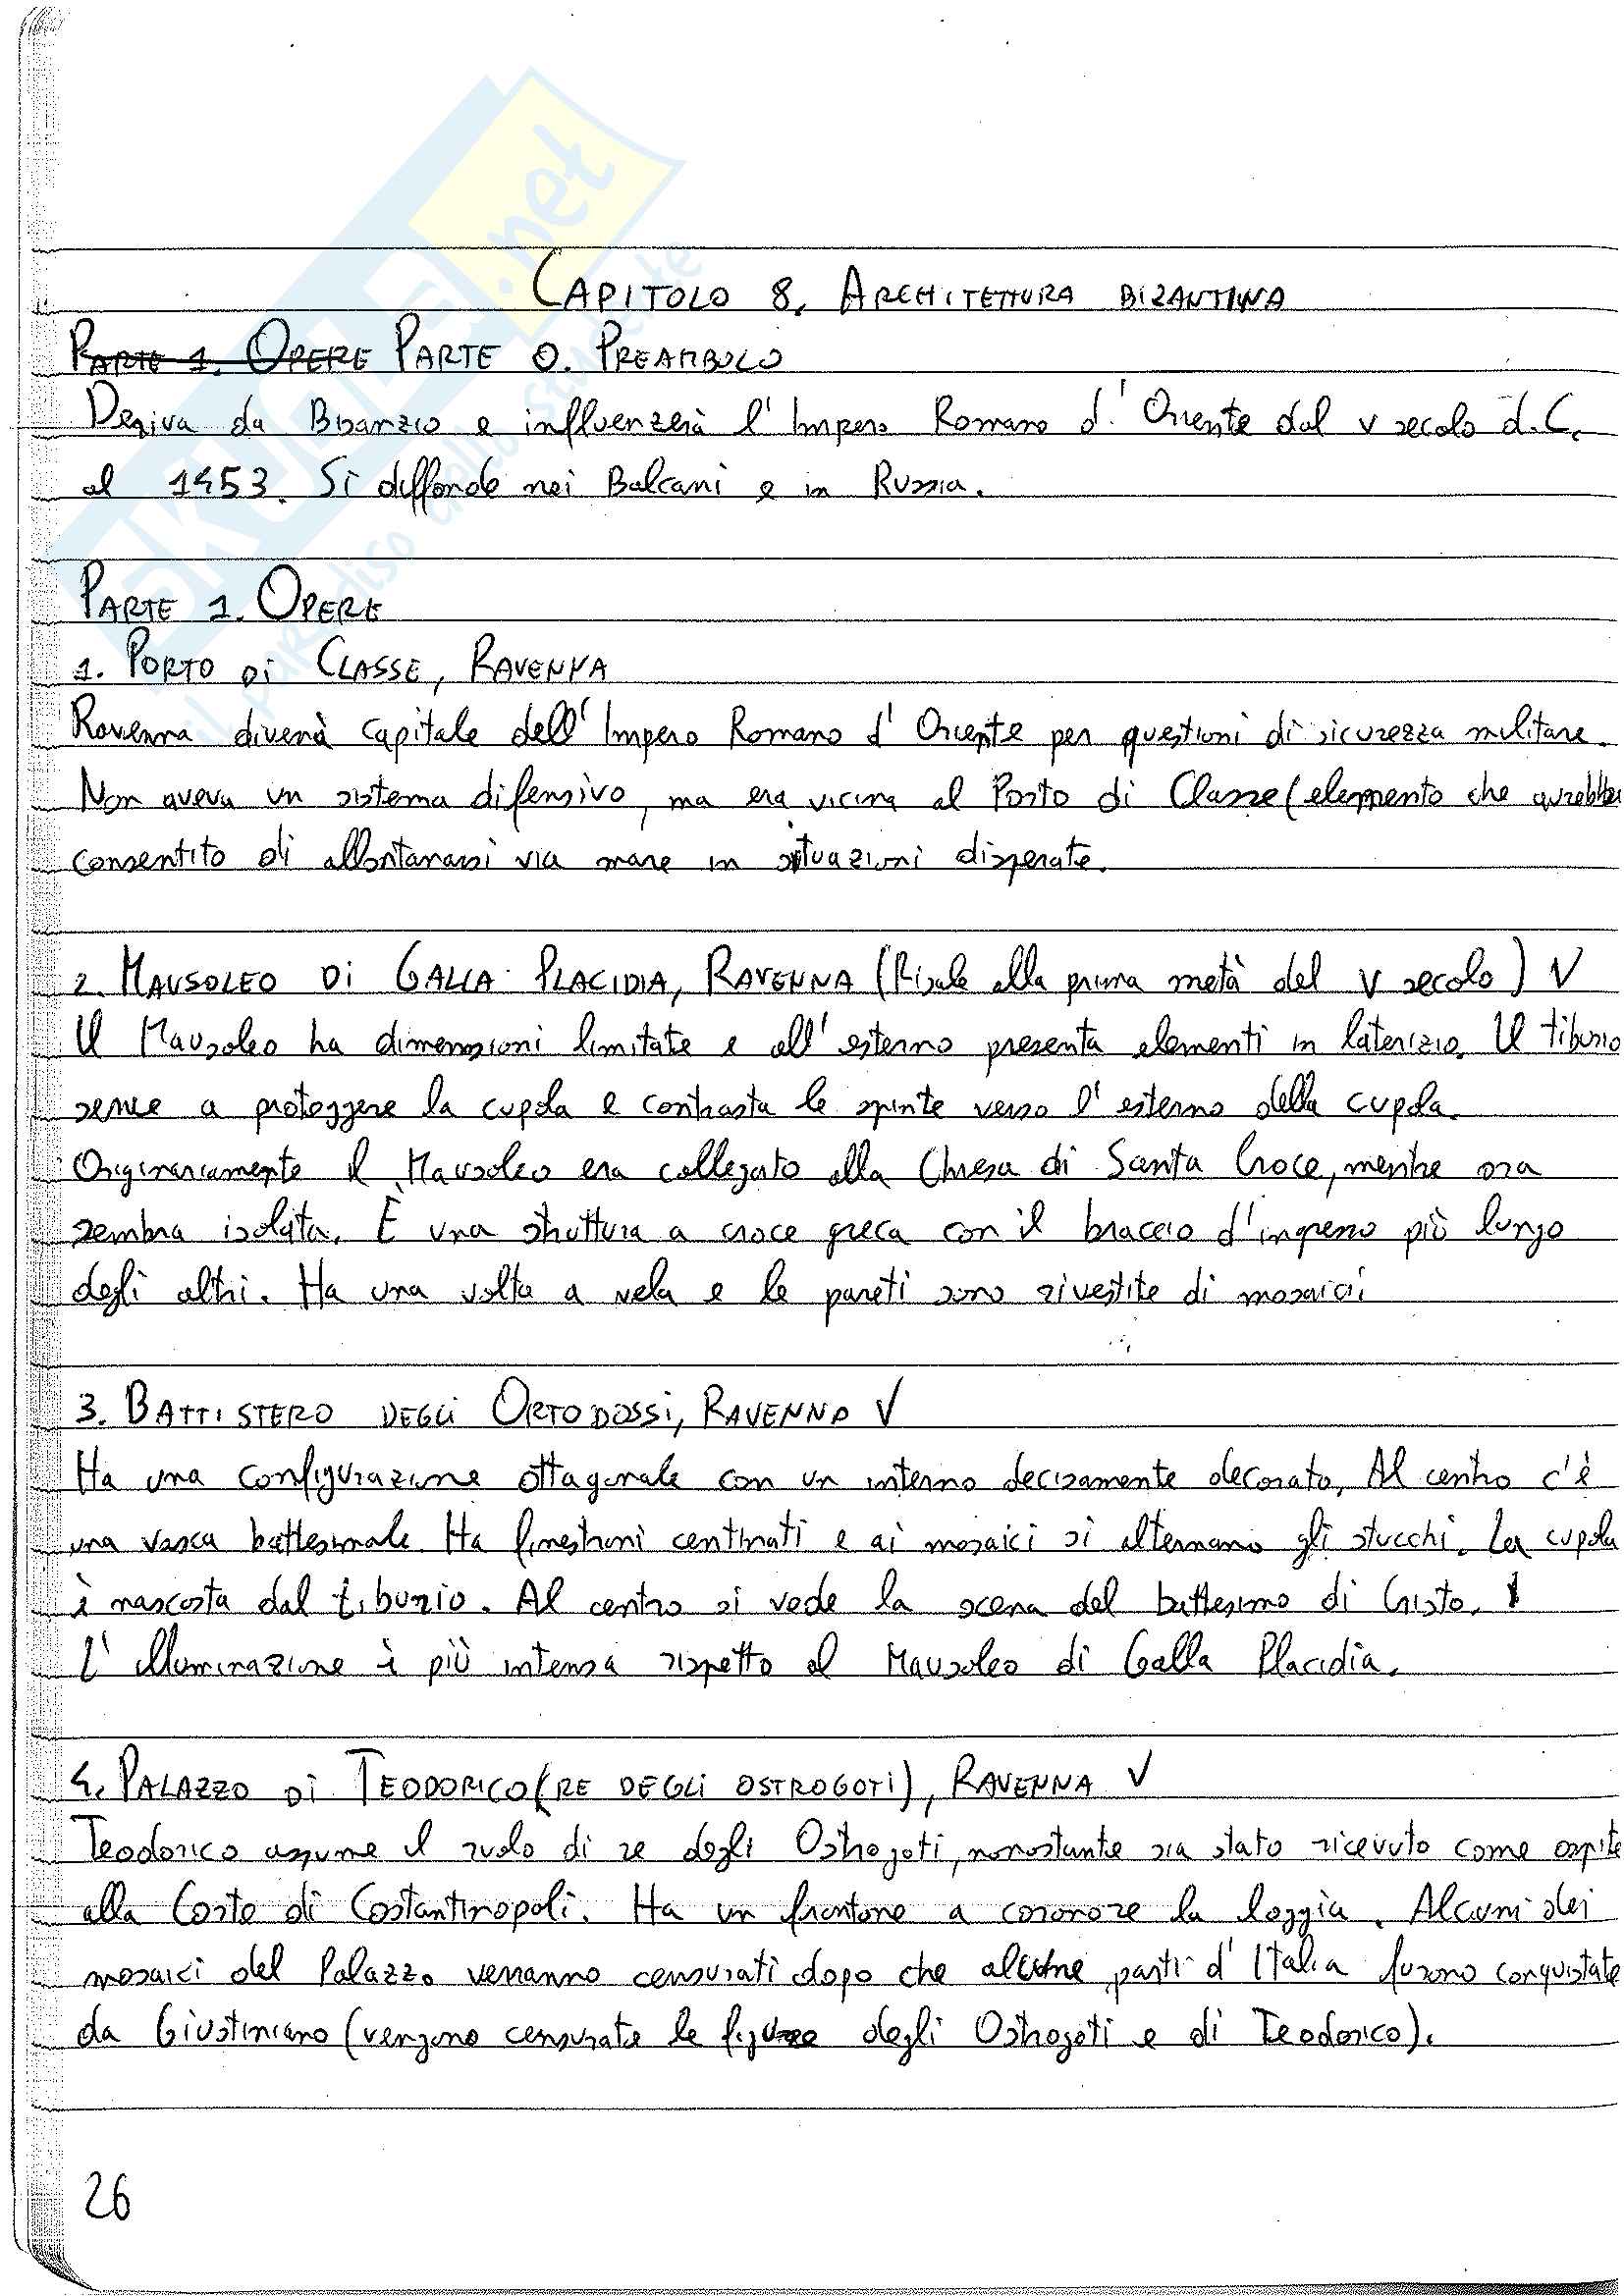 SKUOLA.net
il paradiso dello studente
CAPITOLO 8. ARCHITETTURA BIZANTINA
PARTE 1. OPERE PARTE 0. PREAMBOLO
Deriva da Bisanzio e influenzerà l'Impero Romano d'Oriente dal V secolo d.C.
al 1453. Si diffonde nei Balcani e in Russia.
PARTE 1. OPERE
1. PORTO DI CLASSE, RAVENNA
Ravenna diverrà capitale dell'Impero Romano d'Oriente per questioni di sicurezza militare.
Non aveva un sistema difensivo, ma era vicina al Porto di Classe (elemento che avrebbe
consentito di allontanarsi via mare in situazioni disperate.
2. MAUSOLEO DI GALLA PLACIDIA, RAVENNA (Risale alla prima metà del V secolo) V
Il Mausoleo ha dimensioni limitate e all'esterno presenta elementi in laterizio. Il tiburio
serve a proteggere la cupola e contrasta le spinte verso l'esterno della cupola.
Originariamente il Mausoleo era collegato alla Chiesa di Santa Croce, mentre ora
sembra isolata. È una struttura a croce greca con il braccio d'ingresso più lungo
degli altri. Ha una volta a vela e le pareti sono rivestite di mosaici
3. BATTISTERO DEGLI ORTODOSSI, RAVENNA V
Ha una configurazione ottagonale con un interno decisamente decorato. Al centro c'è
una vasca battesimale. Ha finestroni centinati e ai mosaici si alternano gli stucchi. La cupola
è nascosta dal tiburio. Al centro si vede la scena del battesimo di Cristo.
L'illuminazione è più intensa rispetto al Mausoleo di Galla Placidia.
4. PALAZZO DI TEODORICO (RE DEGLI OSTROGOTI), RAVENNA V
Teodorico assume il ruolo di re degli Ostrogoti, nonostante sia stato ricevuto come ospite
alla Corte di Costantinopoli. Ha un frontone a coronare la loggia. Alcuni dei
mosaici del Palazzo verranno censurati dopo che alcune parti d'Italia furono conquistate
da Giustiniano (vengono censurate le figure degli Ostrogoti e di Teodorico).
26